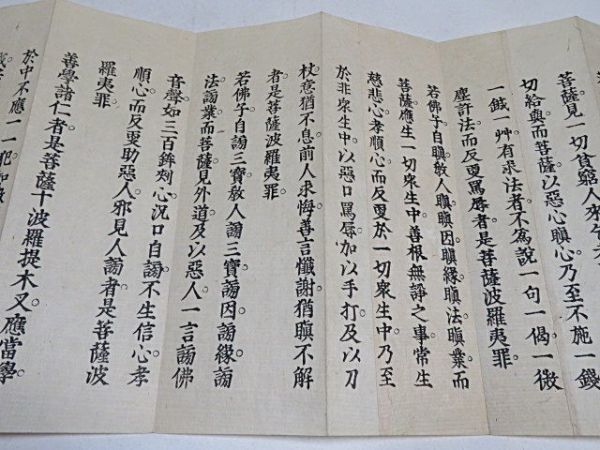 菩薩見一切貧窮人來乞者
切給與而菩薩以惡心瞋心乃至不施一錢
一鍼一艸有求法者不為說一句一偈一微
塵許法而反更罵辱者是菩薩波羅夷罪
若佛子自瞋教人瞋瞋因瞋緣瞋法瞋業而
菩薩應生一切衆生中善根無諍之事常生
慈悲心孝順心而反更於一切衆生中乃至
於非衆生中以惡口罵辱加以手打及以刀
杖意猶不息前人求悔善言懺謝猶瞋不解
者是菩薩波羅夷罪
若佛子自謗三寶教人謗三寶謗因謗緣謗
法謗業而菩薩見外道及以惡人一言謗佛
音聲如三百鉾刺心況口自謗不生信心孝
順心而反更助惡人邪見人謗者是菩薩波
羅夷罪
善學諸仁者是菩薩十波羅提木叉應當學
於中不應一一犯如微